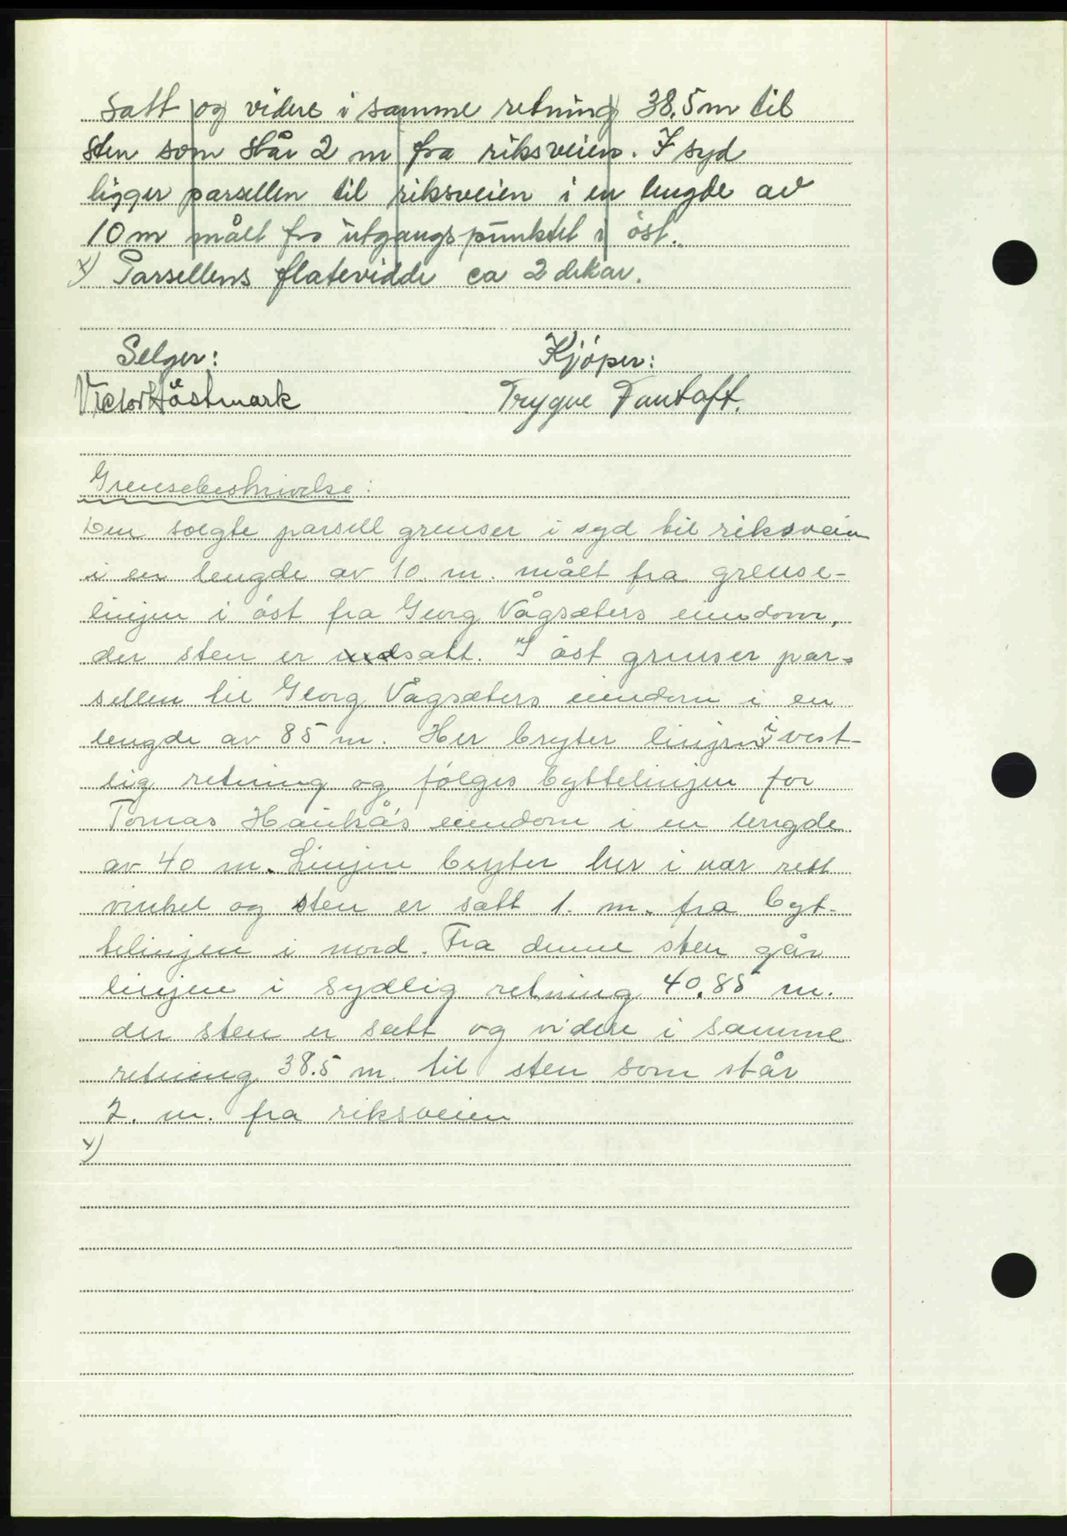 satt og videre i samme retning 38,5 m til
sten som står 2 m fra riksveien. I syd
ligger parsellen til riksveien i en lengde av
10 m målt fra utgangspunktet i öst.
x) Parsellens flatevidde ca 2 dekar.
Selger:
Kjöper:
Victor Höstmark
Trygve Fantoft.
Grensebeskrivelse:
Den solgte parsell grenser i syd til riksveien
i en lengde av 10. m. målt fra grense-
linjen i öst fra Georg Vågsæters eiendom,
der sten er satt. I öst grenser par-
sellen til Georg Vågsæters eiendom i en
lengde av 85 m. Her bryter linjen i vest-
lig retning og fölges byttelinjen for
Tomas Haukås eiendom i en lengde
av 40 m. Linjen bryter her i nær rett
vinkel og sten er satt 1. m. fra byt-
telinjen i nord. Fra denne sten går
linjen i sydlig retning 40,85 m.
der sten er satt og videre i samme
retning 38.5 m. til sten som står
2. m. fra riksveien
x)